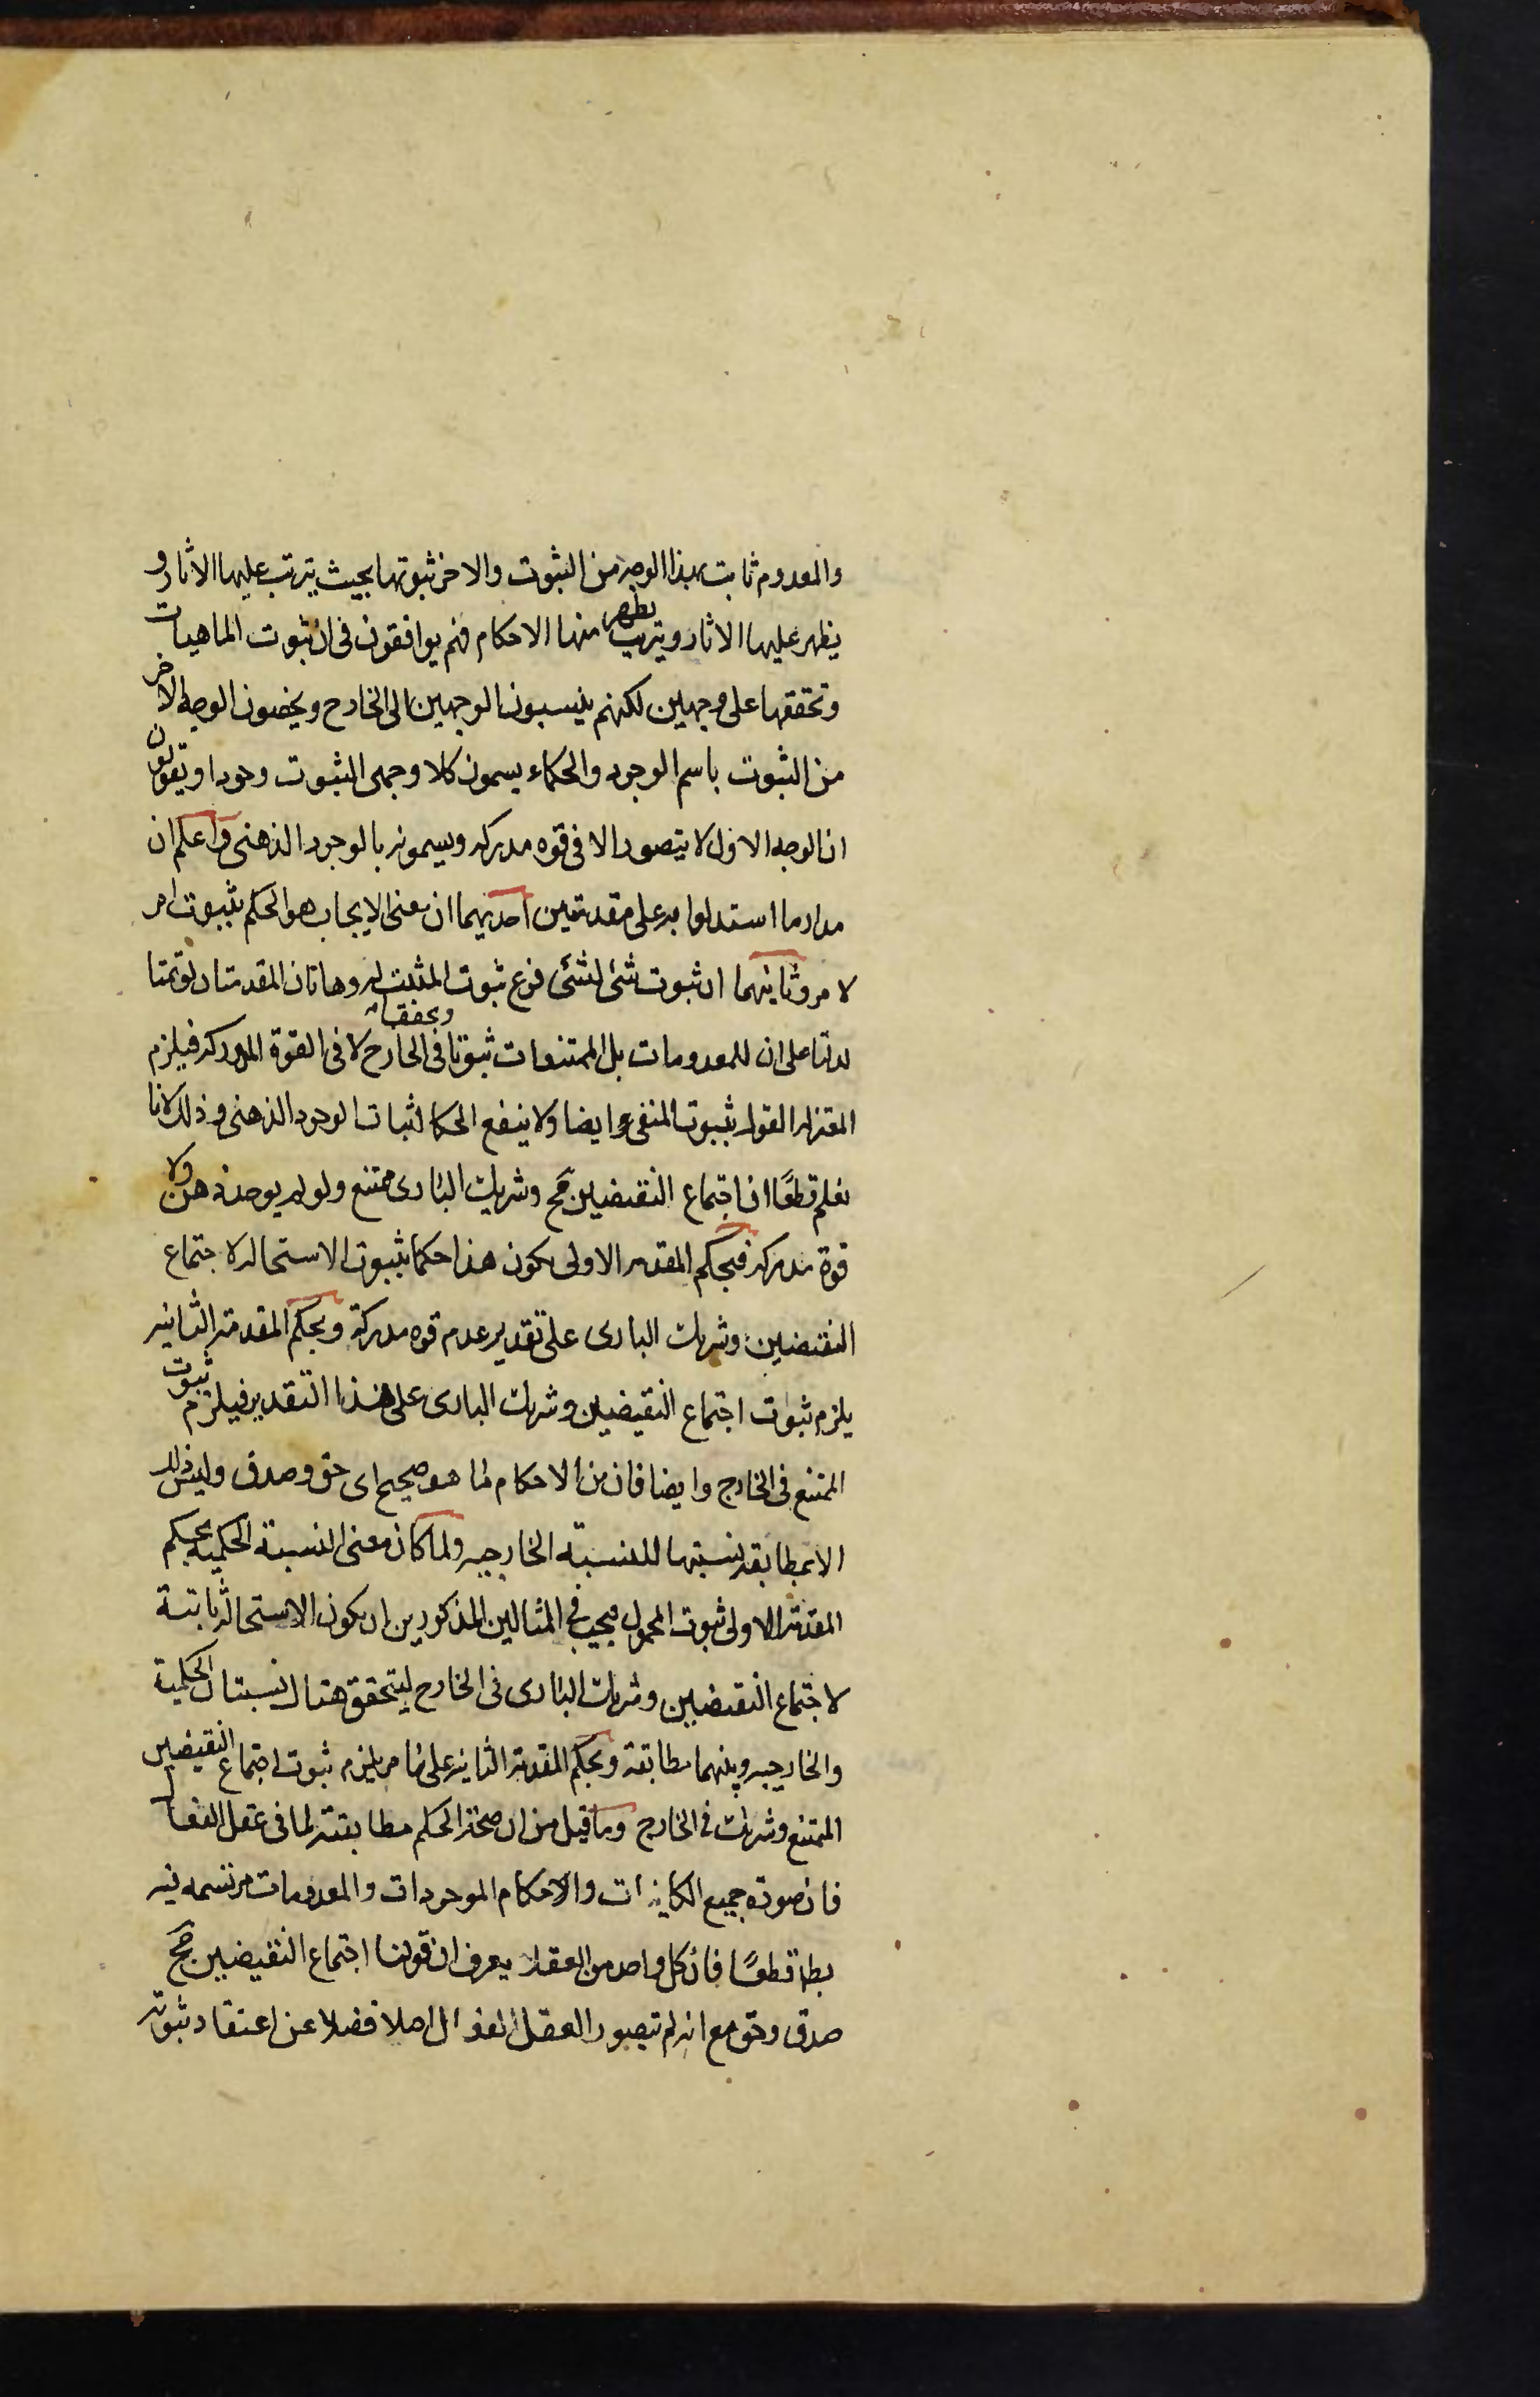 والمعدوم ثابت بهذا الوجه من الثبوت والاخر ثبوتها بحيث يترتب عليها الاثار و
يظهر عليها الاثار ويترتب يظهر منها الاحكام فهم يوافقون فى ان ثبوت الماهيات
وتحققها على وجهين لكنهم ينسبون الوجهين الى الخارج ويخصون الوجه الاخر
من الثبوت باسم الوجود والحكماء يسمون كلا وجهى الثبوت وجودا ويقولون
ان الوجه الاول لا يتصور الا فى قوه مدركه ويسمونه بالوجود الذهنى واعلم ان
مدار ما استدلوا به على مقدمتين احديهما ان معنى الايجاب هو الحكم بثبوت امر
لامر وثانيهما ان ثبوت شئ لشئ فرع ثبوت المثبت له وهاتان المقدمتان لو تمتا
لدلتا على ان للمعدومات بل الممتنعات ثبوتا وتحققا فى الخارج لا فى القوة المدركه فيلزم
المعتزله القول بثبوت المنفى ايضا ولا ينفع الحكما لثبات الوجود الذهنى وذلك لانا
نعلم قطعًا ان اجتماع النقيضين مح وشريك البارى ممتنع ولو لم يوجد ذهن ولا
قوة مدركه فبحكم المقدمه الاولى يكون هذا حكما بثبوت الاستحاله لاجتماع
النقيضين وشريك البارى على تقدير عدم قوه مدركة وبحكم المقدمة الثانيه
يلزم ثبوت اجتماع النقيضين وشريك البارى على هذا التقدير فيلزم ثبوت
الممتنع فى الخارج وايضا فان من الاحكام لما هو صحيح اى حق وصدق وليس ذلك
الا بمطابقه نسبتها للنسبة الخارجيه ولما كان معنى النسبة الحكمية بحكم
المقدمة الاولى ثبوت المحمول فيجب فى المثالين المذكورين ان يكون الاستحالة ثابتة
لاجتماع النقيضين وشريك البارى فى الخارج ليتحقق هناك نسبتان الحكمية
والخارجيه وبينهما مطابقة وبحكم المقدمة الثانيه على ما مر يلزم ثبوت اجتماع النقيضين
الممتنع وشريك فى الخارج وما قيل من ان صحة الحكم مطابقته لما فى عقل الفعال
فان صوره جميع الكاينات والاحكام الموجودات والمعدومات مرتسمه فيه
بط قطعًا فان كل واحد من العقلا يعرف ان قولنا اجتماع النقيضين مح
صدق وحق مع انه لم يتصور العقل الفعال اصلا فضلا عن اعتقاد ثبوته